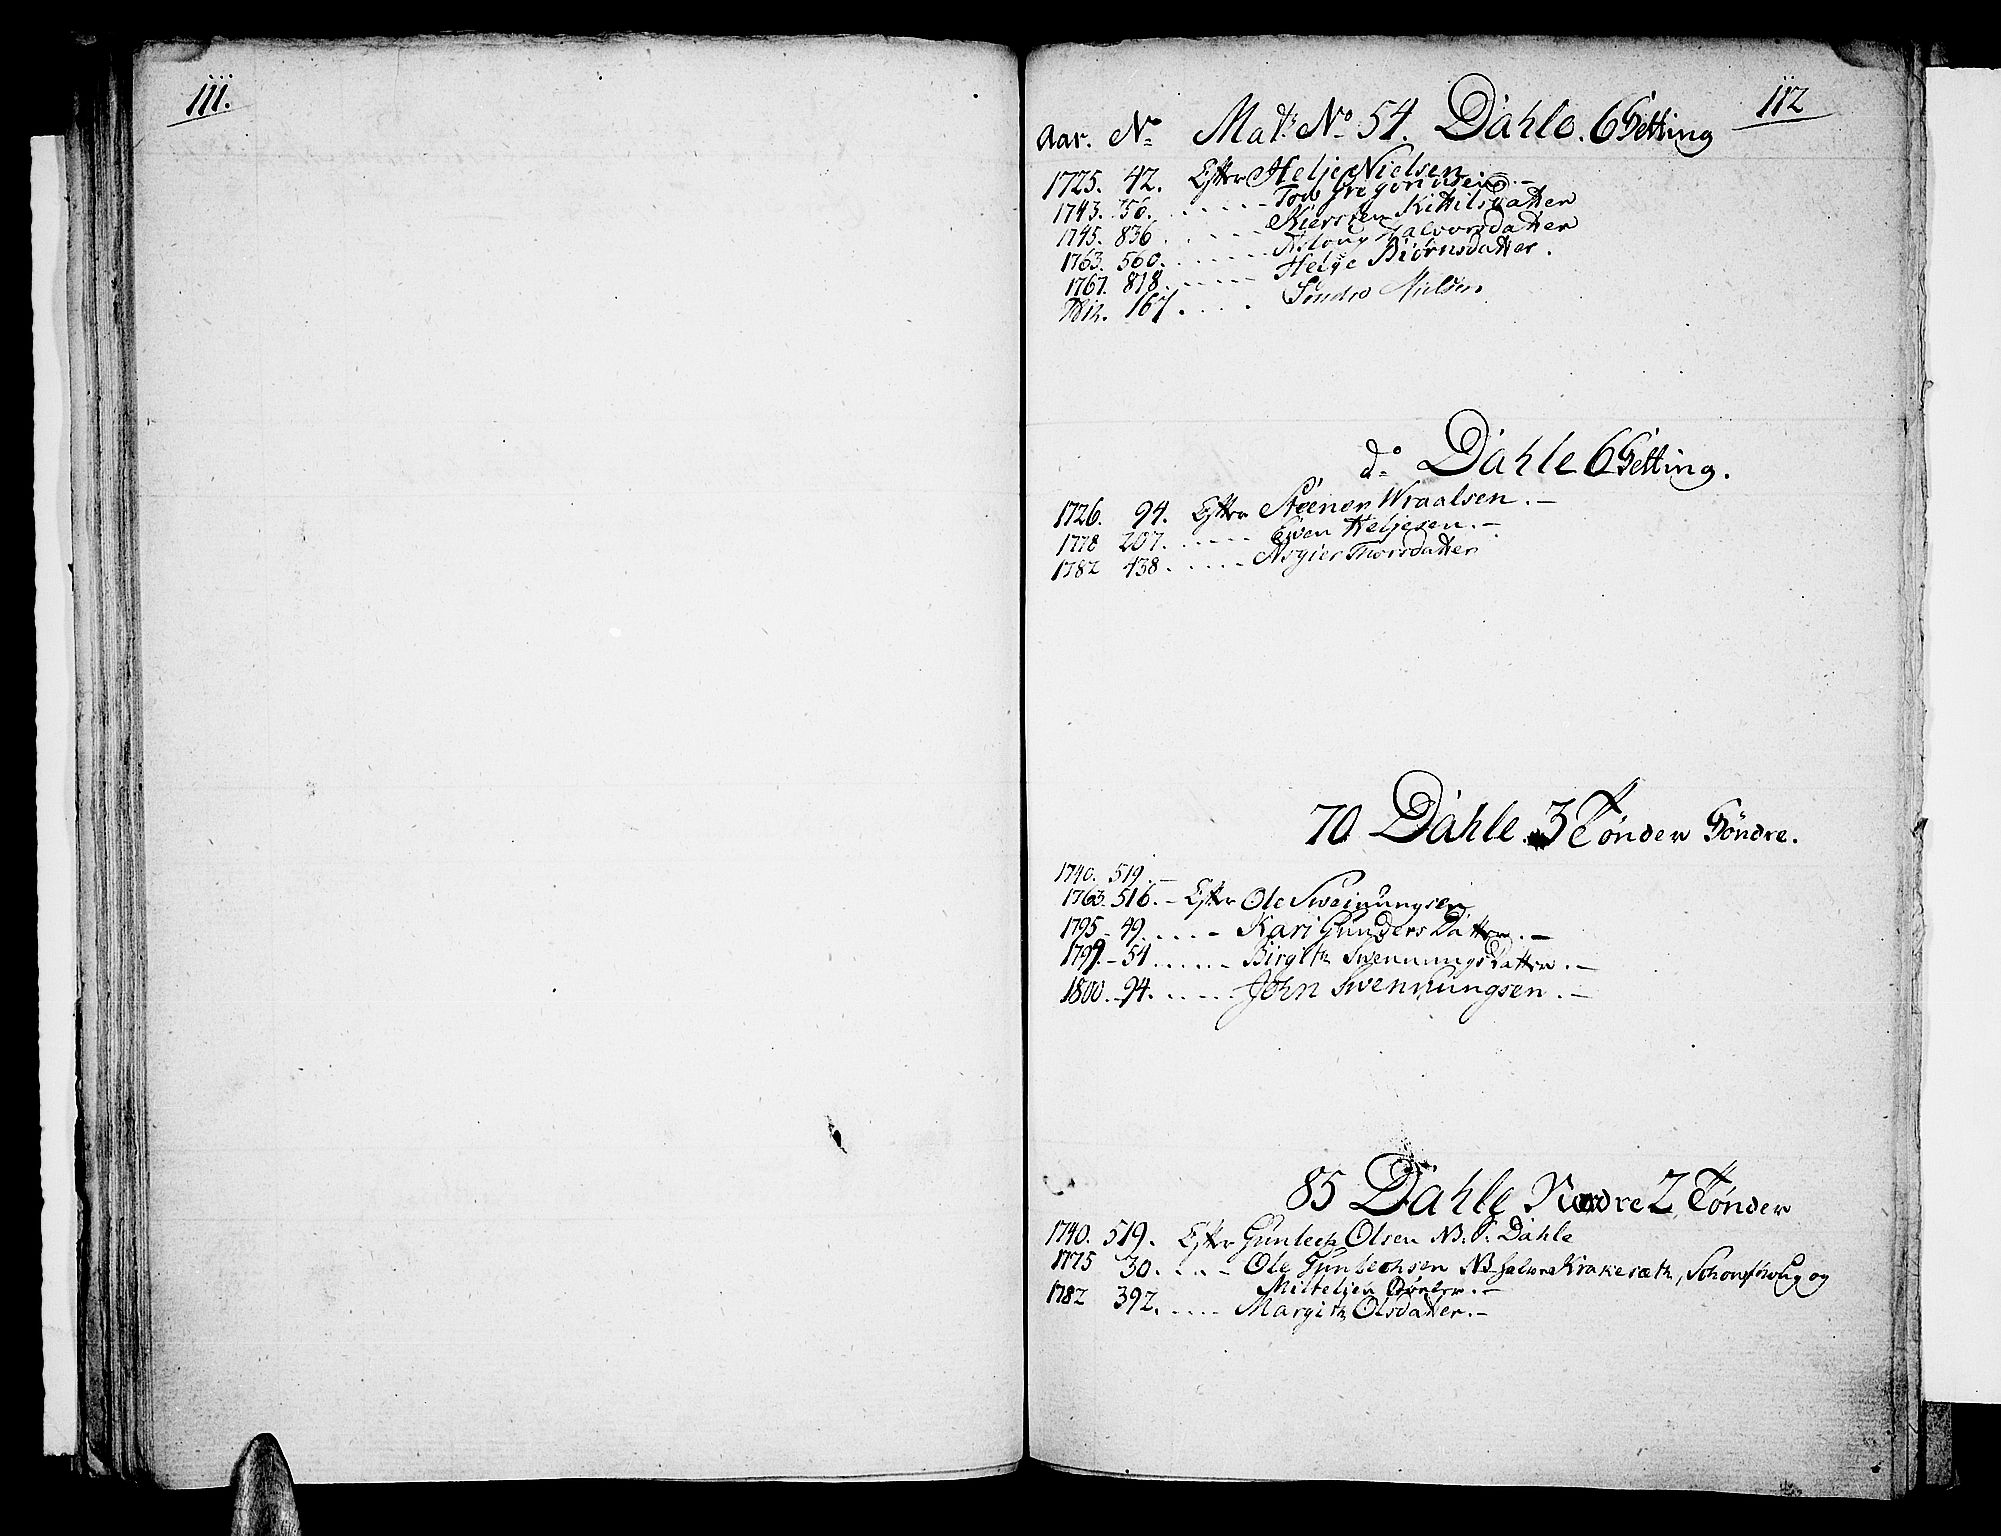 111.
112
Aar. No Mat: No 54. Dahle. 6 Setting
1725. 42. Efter Helje Nielsen
1743. 756. . . . . . Tow Gregoriusen. -
1745. 836 . . . . . . Kiersten Kittilsdatter
1763. 560. . . . . . . Asloug Halvorsdatter
1767. 818. . . . . . Helge Biørnsdatter.
167. . . . . Sondre Nielsen
do Dahle 6 Setting.
1726. 94. Efter Steenor Wraalsen. -
1778 207. . . . . . Even Heljesen. -
1782 438. . . . . . Asgier Thorsdatter
70 Dahle. 3 Tønder Søndre.
1740. 519. -
1763. 516. - Efter Ole Sweinungsen
1795 - 49. . . . . - Kari Gunders Datter. -
1799. - 54. . . . . . - Birgith SwennungsDatter. -
1800. - 94. . . . . . John Swennungsen. -
85 Dahle Nordre 2 Tønder
1740. 519. Efter Gunlech Olsen NB. S. Dahle
1775 30. . . . - Ole Gunlechsen NB Krakesæth, og
1782 392. . . . . Margith Olsdatter. -